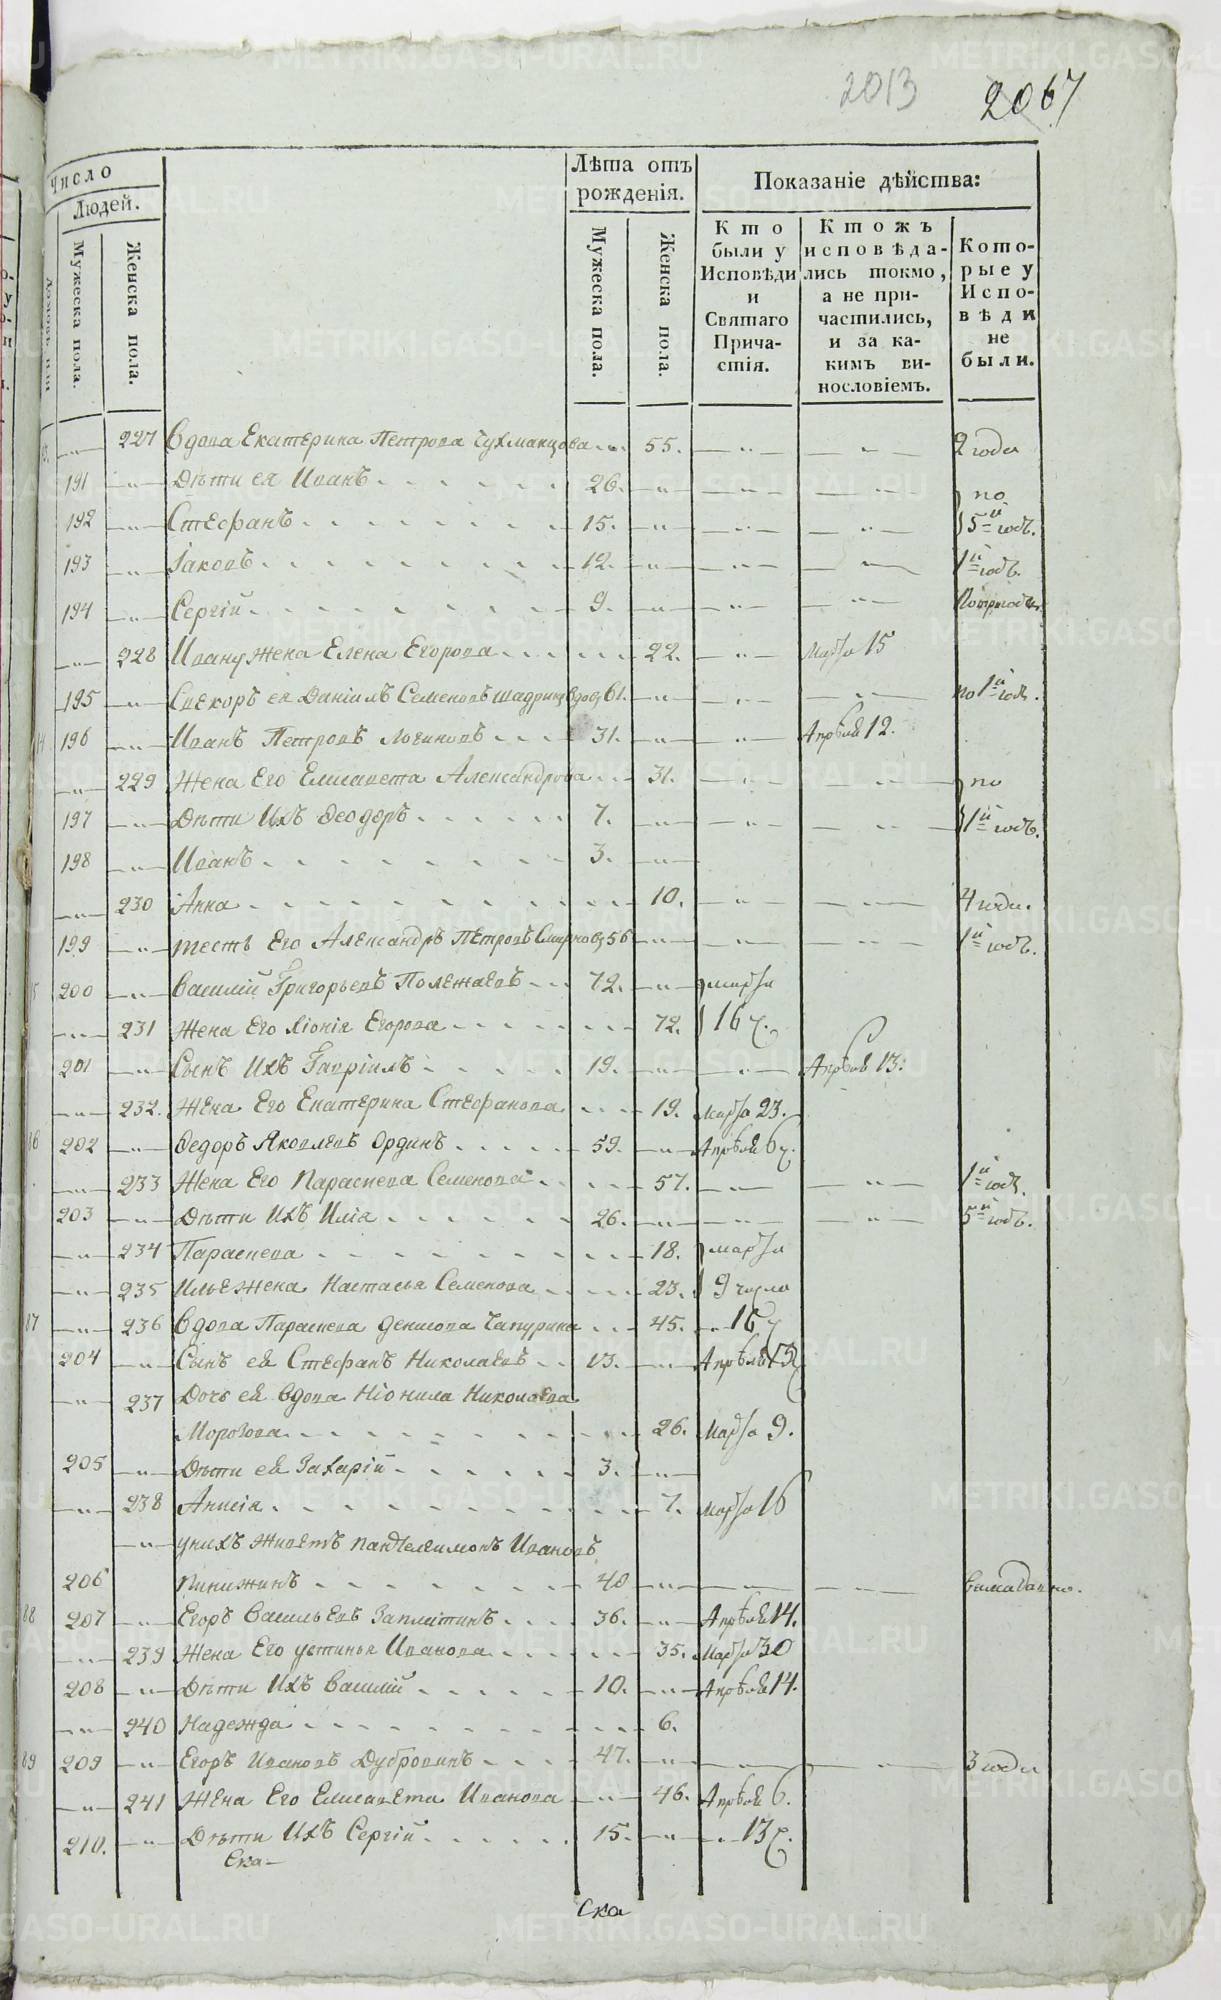 2013 2067
Число
Людей.
Мужеска пола.
Женска пола.
Лѣта отъ рожденія.
Мужеска пола.
Женска пола.
Показаніе дѣйства:
Кто были у Исповѣди и Святаго Причастія.
Ктожъ исповѣдались токмо, а не причастились, и за какимъ винословіемъ.
Которые у Исповѣди не были.
227 Вдова Екатерина Петрова Чухманцова 55. 2 года
191 Дѣти ея Иванъ 26. по
192 Стефанъ 15. 5й годъ.
193 Іаковъ 12. 1й годъ.
194 Сергій 9.
228 Ивану жена Елена Егорова 22. Марта 15
195 Свекоръ ея Даніилъ Семеновъ Шадринъ вдовъ 61. по 1й годъ.
196 Иванъ Петровъ Логиновъ 31. Апрѣля 12.
229 Жена Его Елисавета Александрова 31. по
197 Дѣти Ихъ Феодоръ 7. 1й годъ.
198 Иванъ 3.
230 Анна 10. 4 года.
199 Тесть Его Александръ Петровъ Смирновъ 56 1й годъ.
200 Василій Григорьевъ Полежаевъ 72. марта
231 Жена Его Хіонія Егорова 72. 16 ч.
201 Сынъ Ихъ Гавріилъ 19. Апрѣля 13.
232. Жена Его Екатерина Стефанова 19. Марта 23.
86 202 Федоръ Яковлевъ Ординъ 59. Апрѣля 6 ч.
233 Жена Его Параскева Семенова 57. 1й годъ.
203 Дѣти Ихъ Илія 26. 5й годъ.
234 Параскева 18. марта
235 Илье жена Настасья Семенова 23. 9 число
87 236 Вдова Параскева Денисова Чапурина 45. 16 ч
204 Сынъ ея Стефанъ Николаевъ 13. Апрѣля 13
237 Дочь ея вдова Ніонила Николаева
Морозова 26. Марта 9.
205 Дѣти ея Захарій 3.
238 Анисія 7. марта 16
уних живетъ Пантелеимонъ Ивановъ
206 Пинижинъ 40
88 207 Егоръ Васильевъ Заплатинъ 36. Апрѣля 14.
239 Жена Его Устинья Иванова 35. Марта 30
208 Дѣти Ихъ Василій 10. Апрѣля 14.
240 Надежда 6.
89 209 Егоръ Ивановъ Дубровинъ 47. 3 года
241 Жена Его Елисавета Иванова 46. Апрѣля 6.
210. Дѣти Ихъ Сергій 15. 13 ч.
Ека-
Ска
METRIKI.GASO-URAL.RU